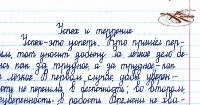 Успех и терпение
Успех - это иллюзия. Кто принял пер-
вым, тот уносит добычу. За легкое дело бе-
рись как за трудное, а за трудное - как
за лёгкое. В первом случае, дабы уверен-
ность не перешла в беспечность; во втором,
неуверенность - в робость. Времени не хва-